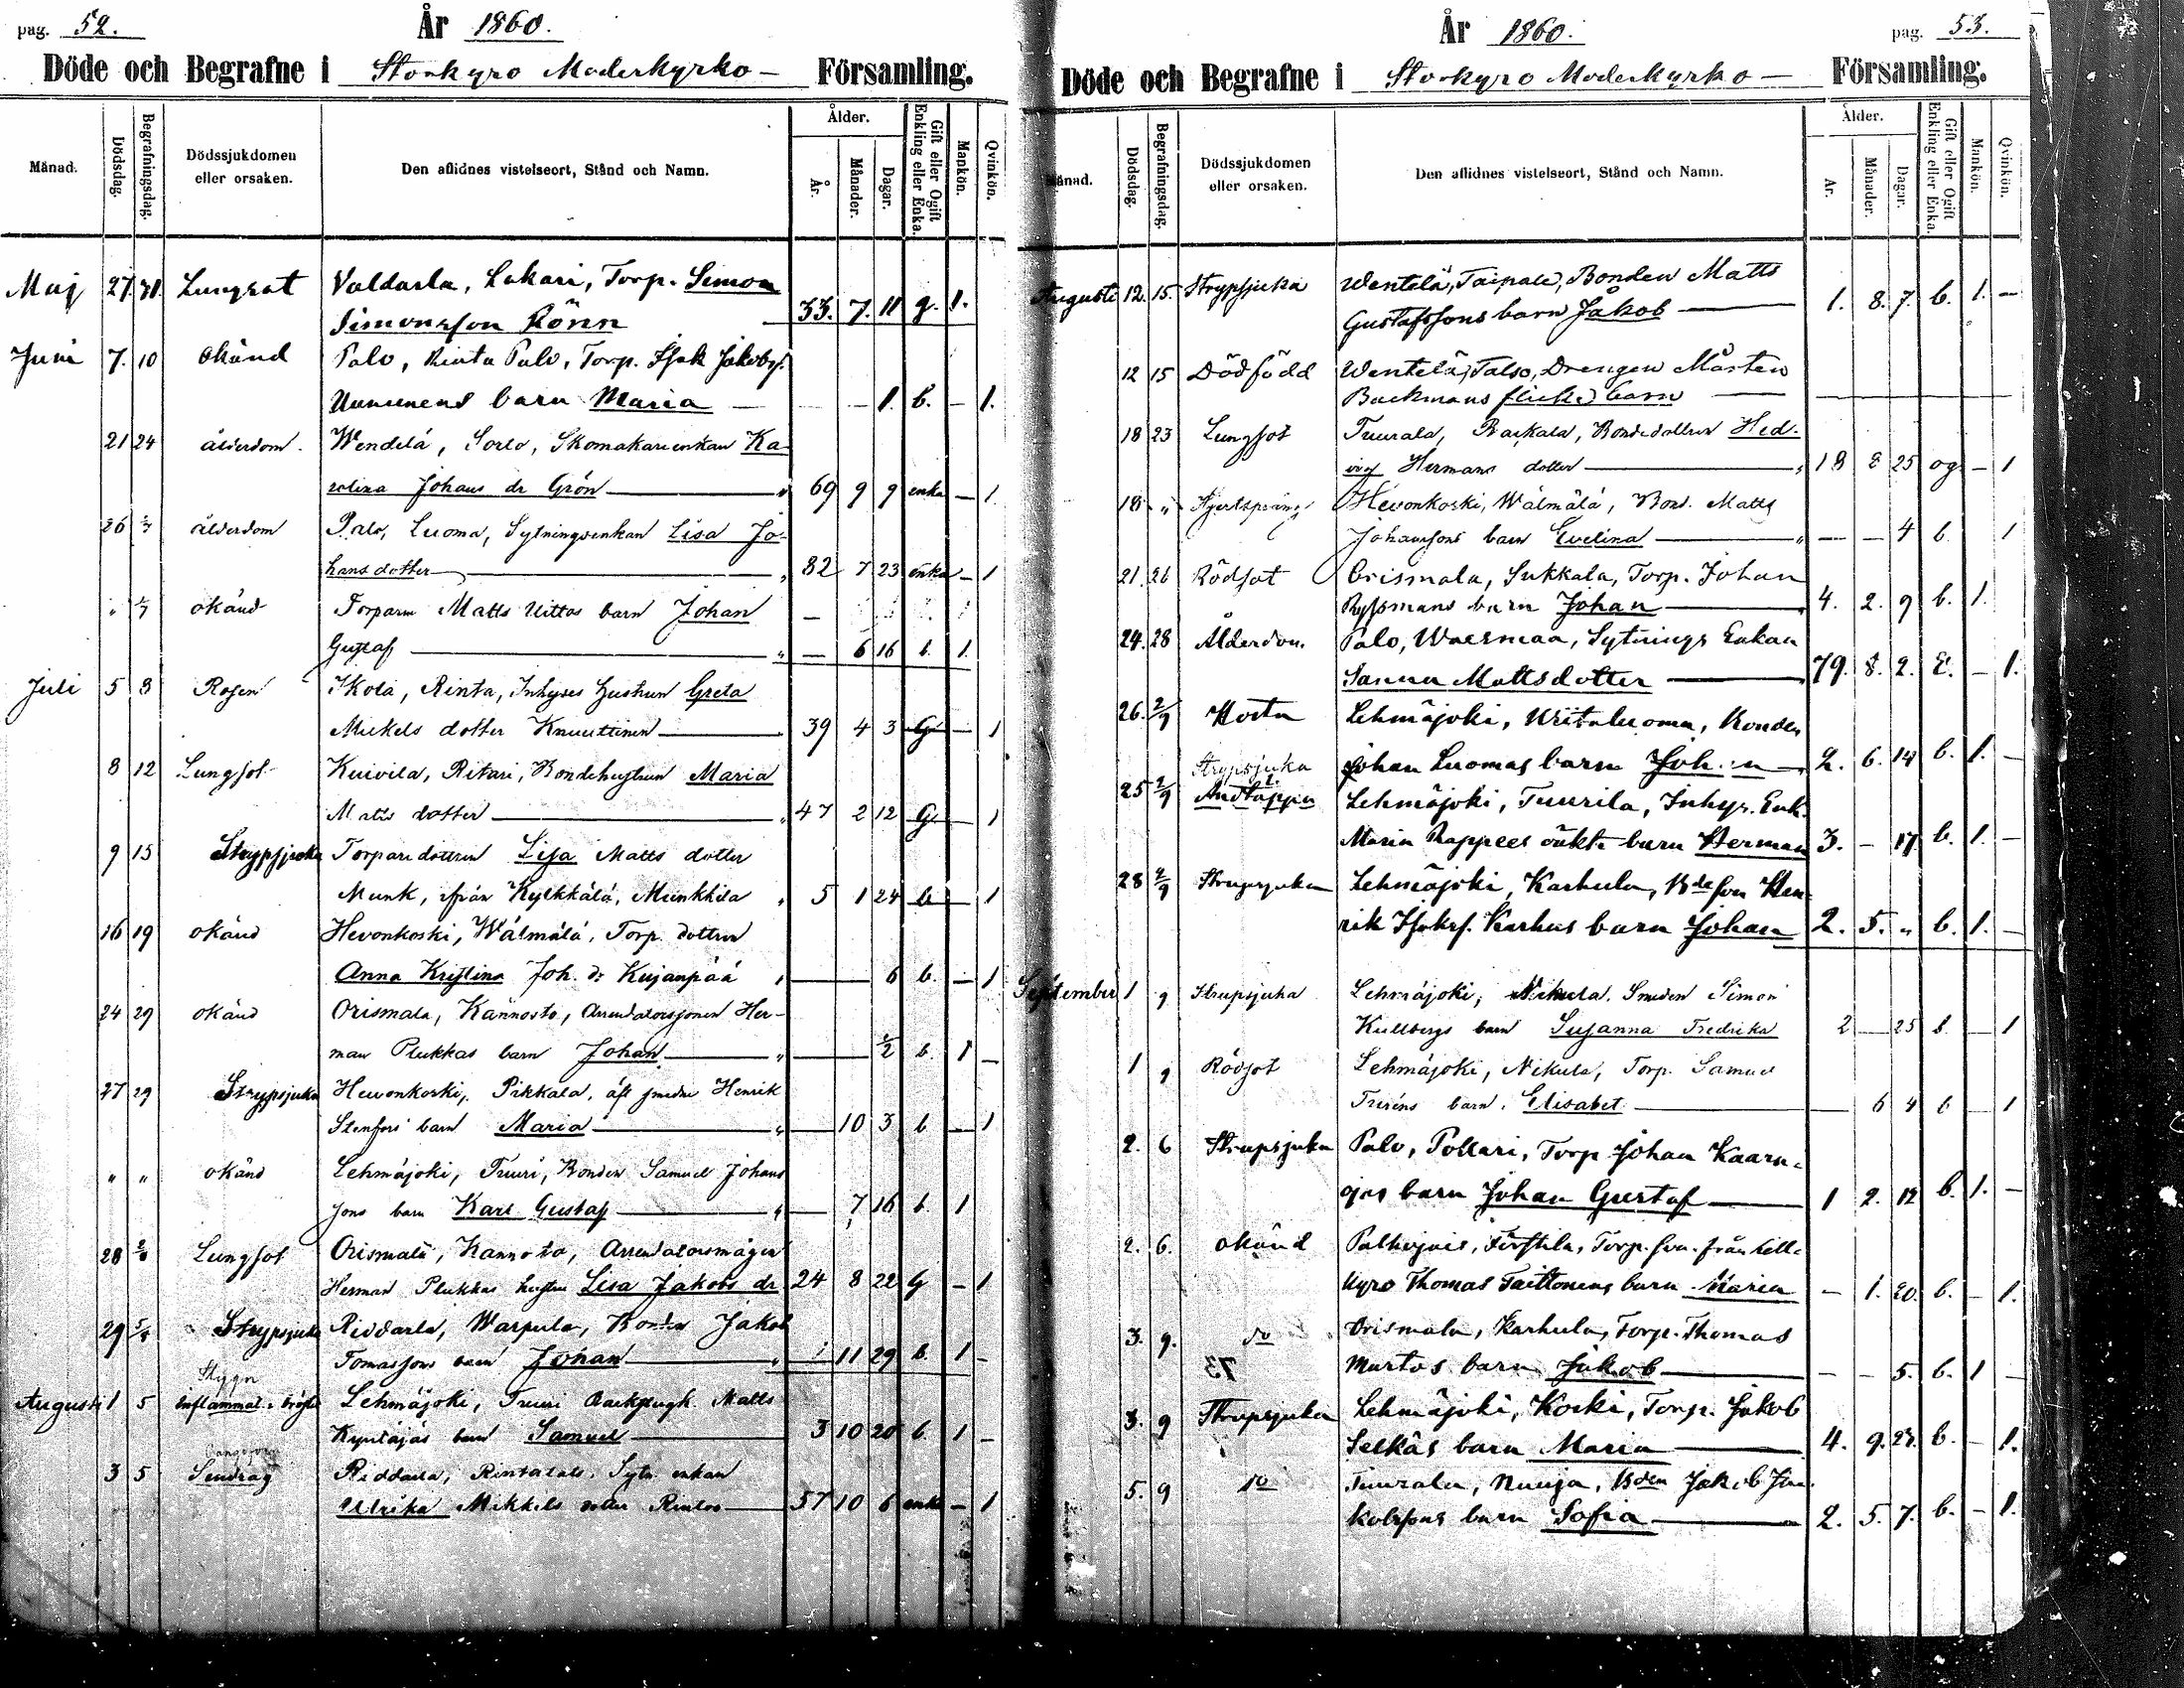 pag. 52.
År 1860.
Döde och Begrafne i Storkyro Moderkyrko- Församling.
Månad.
Dödsdag.
Begrafningsdag.
Dödssjukdomen eller orsaken.
Den aflidnes vistelseort, Stånd och Namn.
Ålder.
År.
Månader.
Dagar.
Gift eller Ogift Enkling eller Enka.
Mankön.
Qvinkön.
Maj 27. 31. Lungsot Valdarla, Lakari, Torp. Simon
Simonsson Rönn 33. 7. 11 g. 1.
Juni 7. 10 okänd Palo, Rinta Palo, Torp. Isak Jakobss.
barn Maria — 1. b. — 1.
21 24 ålderdom. Wendelä, Sorlo, Skomakareenkan Ka-
rolina Johans dr Grön 69 9 9 enka — 1
26 ålderdom Palo, Luoma, Sytningsenkan Lisa Jo-
hans dotter 82 7 23 enka — 1
" okänd Torparn Matts Uittos barn Johan
Gustaf — 6 16 b. 1.
Juli 5 8 Rosen Ikola, Rinta, Inhyses hustrun Greta
Mickels dotter Knuuttinen 39 4 3 G — 1
8 12 Lungsot Kuivila, Ritari, Bondehustrun Maria
Matts dotter 47 2 12 G — 1
9 15 Strypsjuka Torparedottren Lisa Matts dotter
Munk, ifrån Kylkkälä, Munkkila 5 1 24 b — 1
16 19 okänd Hevonkoski, Wälmälä, Torp. dottren
Anna Kristina Joh. dr Kujanpää — 6 b. — 1
24 29 okänd Orismala, Kännosto, Arrendatorssonen Her-
man Plukkas barn Johan — ½ b. 1 —
27 29 Strypsjuka Hevonkoski, Pikkala, afl. smeden Henrik
Stenfors barn Maria — 10 3 b — 1
" " okänd Lehmäjoki, Tuuri, Bonden Samuel Johans
sons barn Karl Gustaf — 7 16 b. 1
28 Lungsot Orismala, Kännosto, Arrendatorsmågen
Herman Plukkas hustru Lisa Jakobs dr 24 8 22 G — 1
29 5/8 Strypsjuka Riddarla, Warpula, Bonden Jakob
Tomassons barn Johan 1 11 29 b. 1 —
Augusti 1 5 inflammat. i bröstet Lehmäjoki, Tuuri Matts
barn Samuel 3 10 20 b. 1 —
3 5 Sendrag Riddarla, Rintatalo, Sytn. enkan
Ulrika Mikkels dotter 57 10 6 enka — 1
pag. 53.
År 1860.
Döde och Begrafne i Storkyro Moderkyrko — Församling.
Månad.
Dödsdag.
Begrafningsdag.
Dödssjukdomen eller orsaken.
Den aflidnes vistelseort, Stånd och Namn.
Ålder.
År.
Månader.
Dagar.
Gift eller Ogift Enkling eller Enka.
Mankön.
Qvinkön.
Augusti 12. 15. Strypsjuka Wentelä, Taipale, Bonden Matts
Gustafssons barn Jakob — 1. 8. 7. b. 1. —
12 15 Dödfödd Wentelä, Talso, Drengen Mårten
Backmans flicke barn —
18 23 Lungsot Tuurala, Backala, Bondedottren Hed-
vig Hermans dotter — 18 8 25 og — 1
18 " Hjertsprång Hevonkoski, Wälmälä, Bond. Matts
Johanssons barn Evelina — — 4 b. 1
21. 26 Rödsot Orismala, Sukkala, Torp. Johan
Ryssmans barn Johan — 4. 2. 9 b. 1.
24. 28 Ålderdom. Palo, Waermaa, Sytnings Enkan
Sanna Mattsdotter — 79. 8. 2. E. — 1.
26. 2/9 Hosta Lehmäjoki, Uitaluoma, Bonden
Johan Luomas barn Johan — 2. 6. 14 b. 1. —
25 2/9 Strypsjuka Andtäppa Lehmäjoki, Tuurila, Inhys. Enk.
Maria Rappees oäkta barn Herman 3. — 17 b. 1. —
28 2/9 Strupsjukan Lehmäjoki, Karhula, Bdeson Hen-
rik Isakss. Karhus barn Johan 2. 5. " b. 1. —
September 1 9 Strupsjuka Lehmäjoki, Nikula, Smeden Simon
Kullbergs barn Susanna Fredrika 2 — 25 b. — 1
1 9 Rödsot Lehmäjoki, Nikula, Torp. Samuel
barn Elisabet — 6 4 b — 1
2. 6 Strupsjuka Palo, Pollari, Torp Johan Kaarn-
ojas barn Johan Gustaf — 1 2. 12 b. 1. —
2. 6. okänd Torp. son från Lill-
kyro Thomas Taittonens barn Maria — 1. 20. b. — 1.
3. 9. do Orismala, Karhula, Torp. Thomas
Murtos barn Jakob — — 5. b. 1 —
3. 9 Strupsjuka Lehmäjoki, Koski, Torp. Jakob
Selkäs barn Maria — 4. 9. 27. b. — 1.
5. 9 do Tuurala, Nuuja, Bden Jakob Ja-
kobssons barn Sofia — 2. 5. 7. b. — 1.